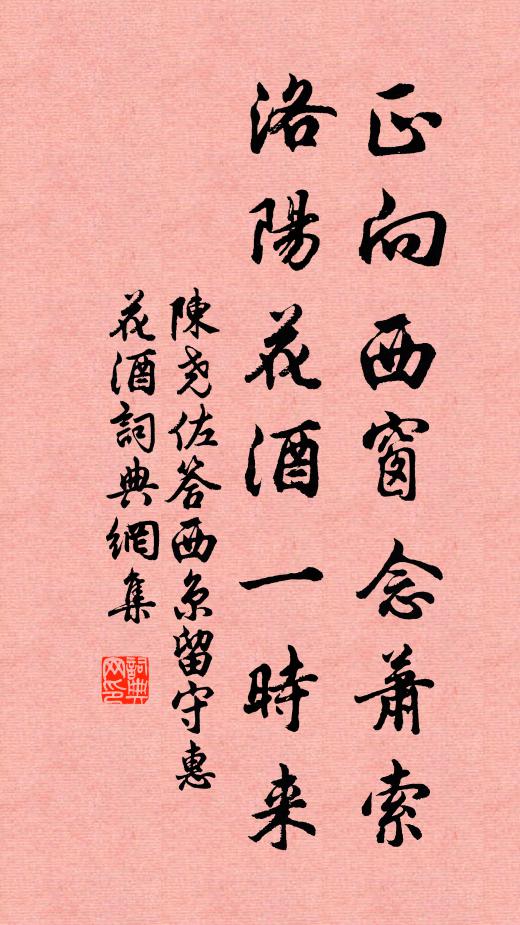 正向西窗念蕭索
洛陽花酒一時来
陳尧佐答西京留守惠
花酒詞典網集
詞典網印